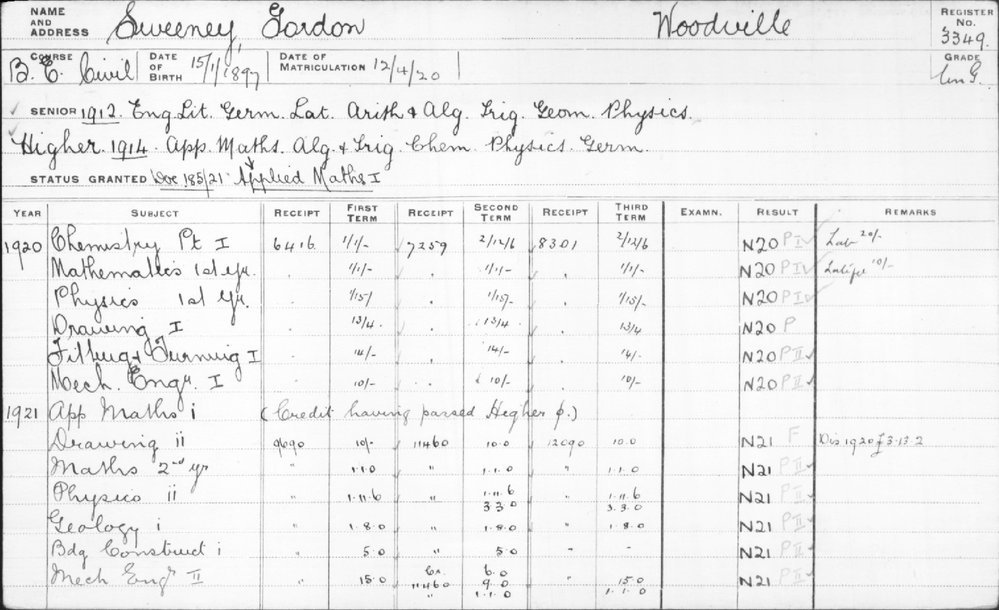 NAME AND ADDRESS Sweeney, Gordon Woodville REGISTER No. 3349.
COURSE B.E. Civil DATE OF BIRTH 15/1/1897 DATE OF MATRICULATION 12/4/20 GRADE
SENIOR 1912. Eng. Lit. Germ. Lat. Arith & Alg. Trig. Geom. Physics.
Higher 1914. App. Maths. Alg. & Trig. Chem. Physics. Germ.
STATUS GRANTED Doc 185/21 Applied Maths I
YEAR SUBJECT RECEIPT FIRST TERM RECEIPT SECOND TERM RECEIPT THIRD TERM EXAMN. RESULT REMARKS
1920 Chemistry Pt I 6416. 1/1/- 7259 2/12/6 8301 2/12/6 N20 P I Lab 20/-
Mathematics 1st Yr. 1/1/- 1/1/- 1/1/- N20 P I 10/-
Physics 1st Yr. 1/15/ 1/15/- 1/15/- N20 P I
Drawing I 13/4. 13/4 13/4 N20 P
Fitting & Turning I 14/- 14/- 14/- N20 P II
Mech. Engr. I 10/- 10/- 10/- N20 P II
1921 App Maths i (Credit having passed Higher P.)
Drawing ii 9690 10/- 11460 10.0 12090 10.0 N21 F Dis 1920 £3-13-2
Maths 2nd yr " 1.1.0 " 1.1.0 " 1.1.0 N21 P II
Physics ii " 1.11.6 " 1.11.6 " 1.11.6 N21 P II
3.3.0 3.3.0
Geology i " 1.8.0 " 1.8.0 " 1.8.0 N21 P II
Bdg Construct i " 5.0 " 5.0 " - N21 P II
Mech Engr II " 15.0 Cr. 6.0 " 15.0 N21 P II
11460 9.0
" 1.1.0 1.1.0